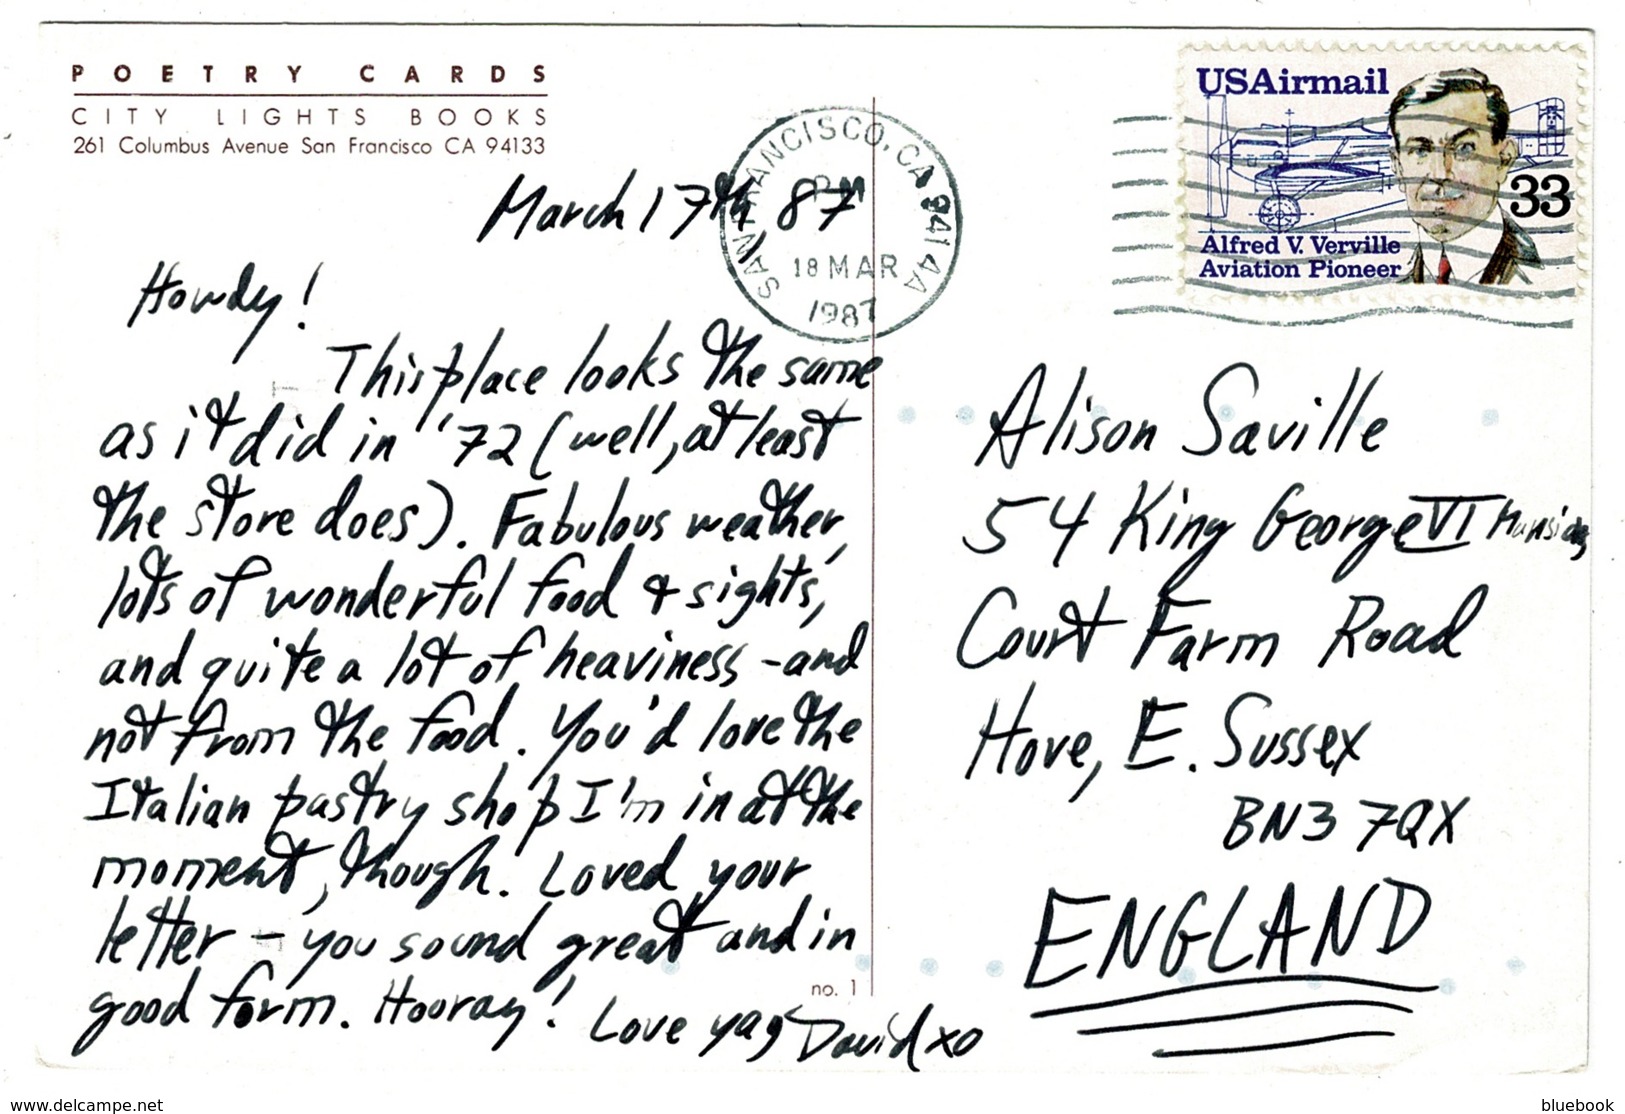 POETRY CARDS
CITY LIGHTS BOOKS
261 Columbus Avenue San Francisco CA 94133
March 17th, 87
Howdy!
This place looks the same
as it did in '72 (well, at least
the store does). Fabulous weather,
lots of wonderful food & sights,
and quite a lot of heaviness - and
not from the food. You'd love the
Italian pastry shop I'm in at the
moment, though. Loved your
letter - you sound great and in
good form. Hooray! Love yas David xo
no. 1
SAN FRANCISCO, CA 941 4A
PM
18 MAR
1987
USAirmail
33
Alfred V. Verville
Aviation Pioneer
Alison Saville
54 King George VI Mansions
Court Farm Road
Hove, E. Sussex
BN3 7QX
ENGLAND
www.delcampe.net
bluebook